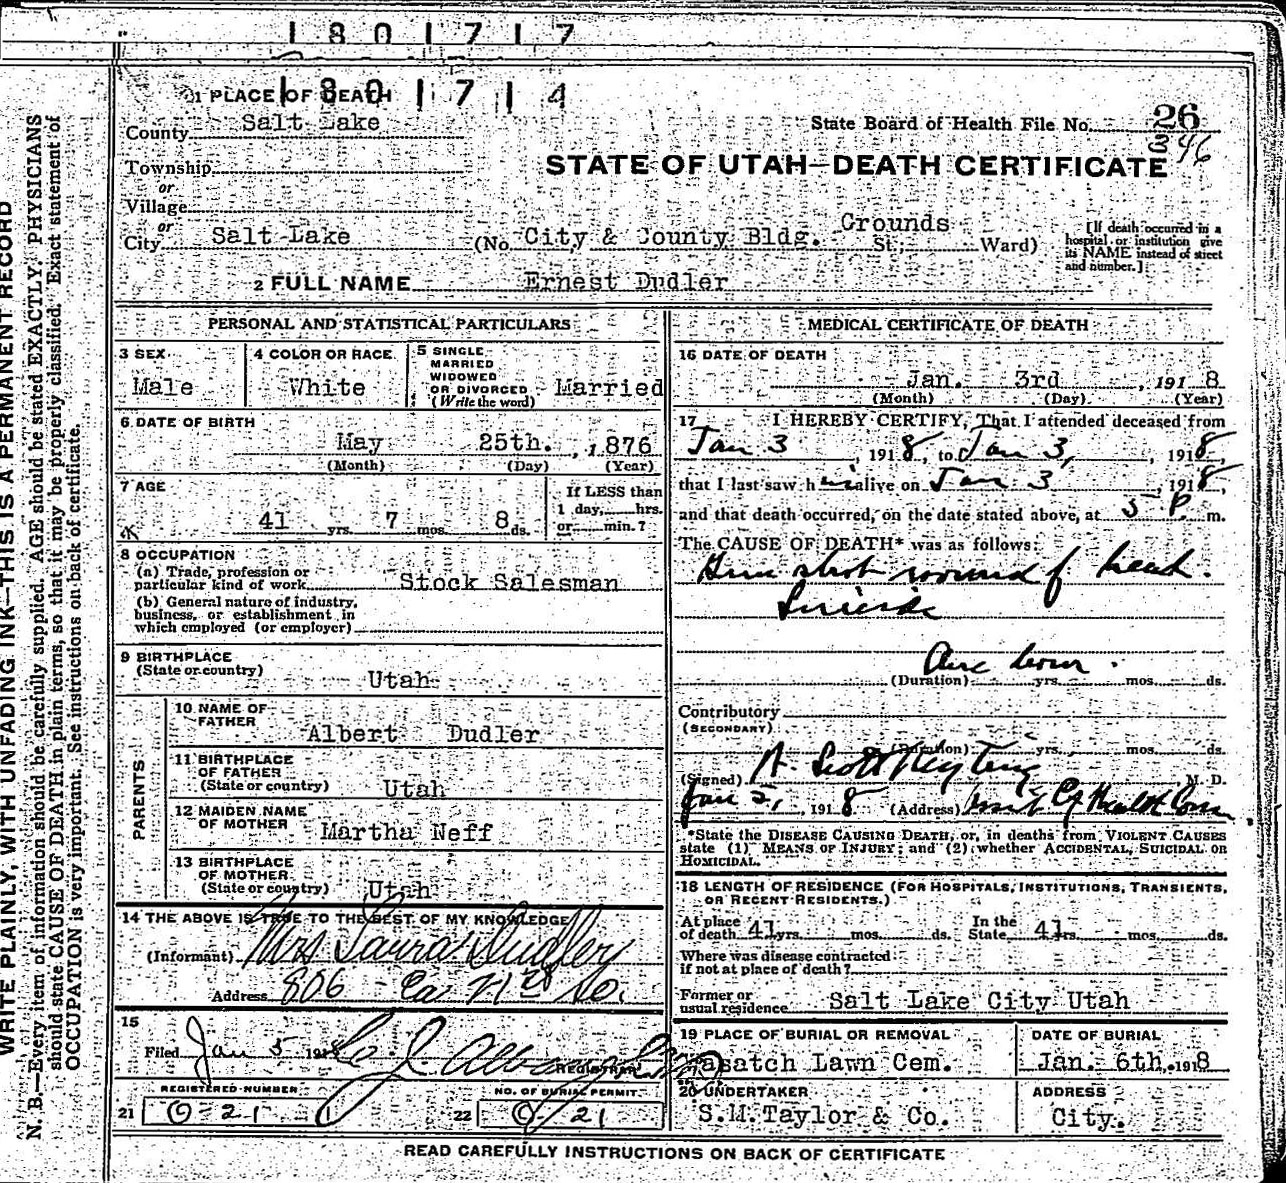 1801717
1801714
1 PLACE OF DEATH
County Salt Lake
State Board of Health File No. 26
346
Township
STATE OF UTAH—DEATH CERTIFICATE
or
Village
or
City Salt Lake (No. City & County Bldg. Grounds St; Ward)
[If death occurred in a hospital or institution give its NAME instead of street and number.]
2 FULL NAME Ernest Dudler
PERSONAL AND STATISTICAL PARTICULARS
3 SEX Male
4 COLOR OR RACE White
5 SINGLE MARRIED WIDOWED OR DIVORCED (Write the word) Married
6 DATE OF BIRTH
May 25th. , 1876
(Month) (Day) (Year)
7 AGE
41 yrs. 7 mos. 8 ds.
If LESS than 1 day, hrs. or min.?
8 OCCUPATION
(a) Trade, profession or particular kind of work Stock Salesman
(b) General nature of industry, business, or establishment in which employed (or employer)
9 BIRTHPLACE
(State or country) Utah
PARENTS
10 NAME OF FATHER Albert Dudler
11 BIRTHPLACE OF FATHER (State or country) Utah
12 MAIDEN NAME OF MOTHER Martha Neff
13 BIRTHPLACE OF MOTHER (State or country) Utah
14 THE ABOVE IS TRUE TO THE BEST OF MY KNOWLEDGE
(Informant) Mrs Laura Dudler
Address 806 - Ea 21st So.
15
Filed Jan 5 191
REGISTRAR
REGISTERED NUMBER
21 0-21
NO. OF BURIAL PERMIT
22 0/21
MEDICAL CERTIFICATE OF DEATH
16 DATE OF DEATH
Jan. 3rd , 1918
(Month) (Day) (Year)
17 I HEREBY CERTIFY, That I attended deceased from
Jan 3 , 1918, to Jan 3, , 1918,
that I last saw h im alive on Jan 3 , 1918,
and that death occurred, on the date stated above, at 5 P. m.
The CAUSE OF DEATH* was as follows:
Gun shot wound of head.
Suicide
One hour.
(Duration) yrs. mos. ds.
Contributory
(SECONDARY)
(Duration) yrs. mos. ds.
(Signed) M. D.
Jan 5, , 1918 (Address)
*State the DISEASE CAUSING DEATH, or, in deaths from VIOLENT CAUSES
state (1) MEANS OF INJURY; and (2) whether ACCIDENTAL, SUICIDAL OR
HOMICIDAL.
18 LENGTH OF RESIDENCE (FOR HOSPITALS, INSTITUTIONS, TRANSIENTS, OR RECENT RESIDENTS.)
At place of death 41 yrs. mos. ds. In the State 41 yrs. mos. ds.
Where was disease contracted if not at place of death?
Former or usual residence Salt Lake City Utah
19 PLACE OF BURIAL OR REMOVAL
Wasatch Lawn Cem.
DATE OF BURIAL
Jan. 6th, 1918
20 UNDERTAKER
S.M. Taylor & Co.
ADDRESS
City.
READ CAREFULLY INSTRUCTIONS ON BACK OF CERTIFICATE
WRITE PLAINLY, WITH UNFADING INK—THIS IS A PERMANENT RECORD
N. B.—Every item of information should be carefully supplied. AGE should be stated EXACTLY. PHYSICIANS
should state CAUSE OF DEATH in plain terms, so that it may be properly classified. Exact statement of
OCCUPATION is very important. See instructions on back of certificate.